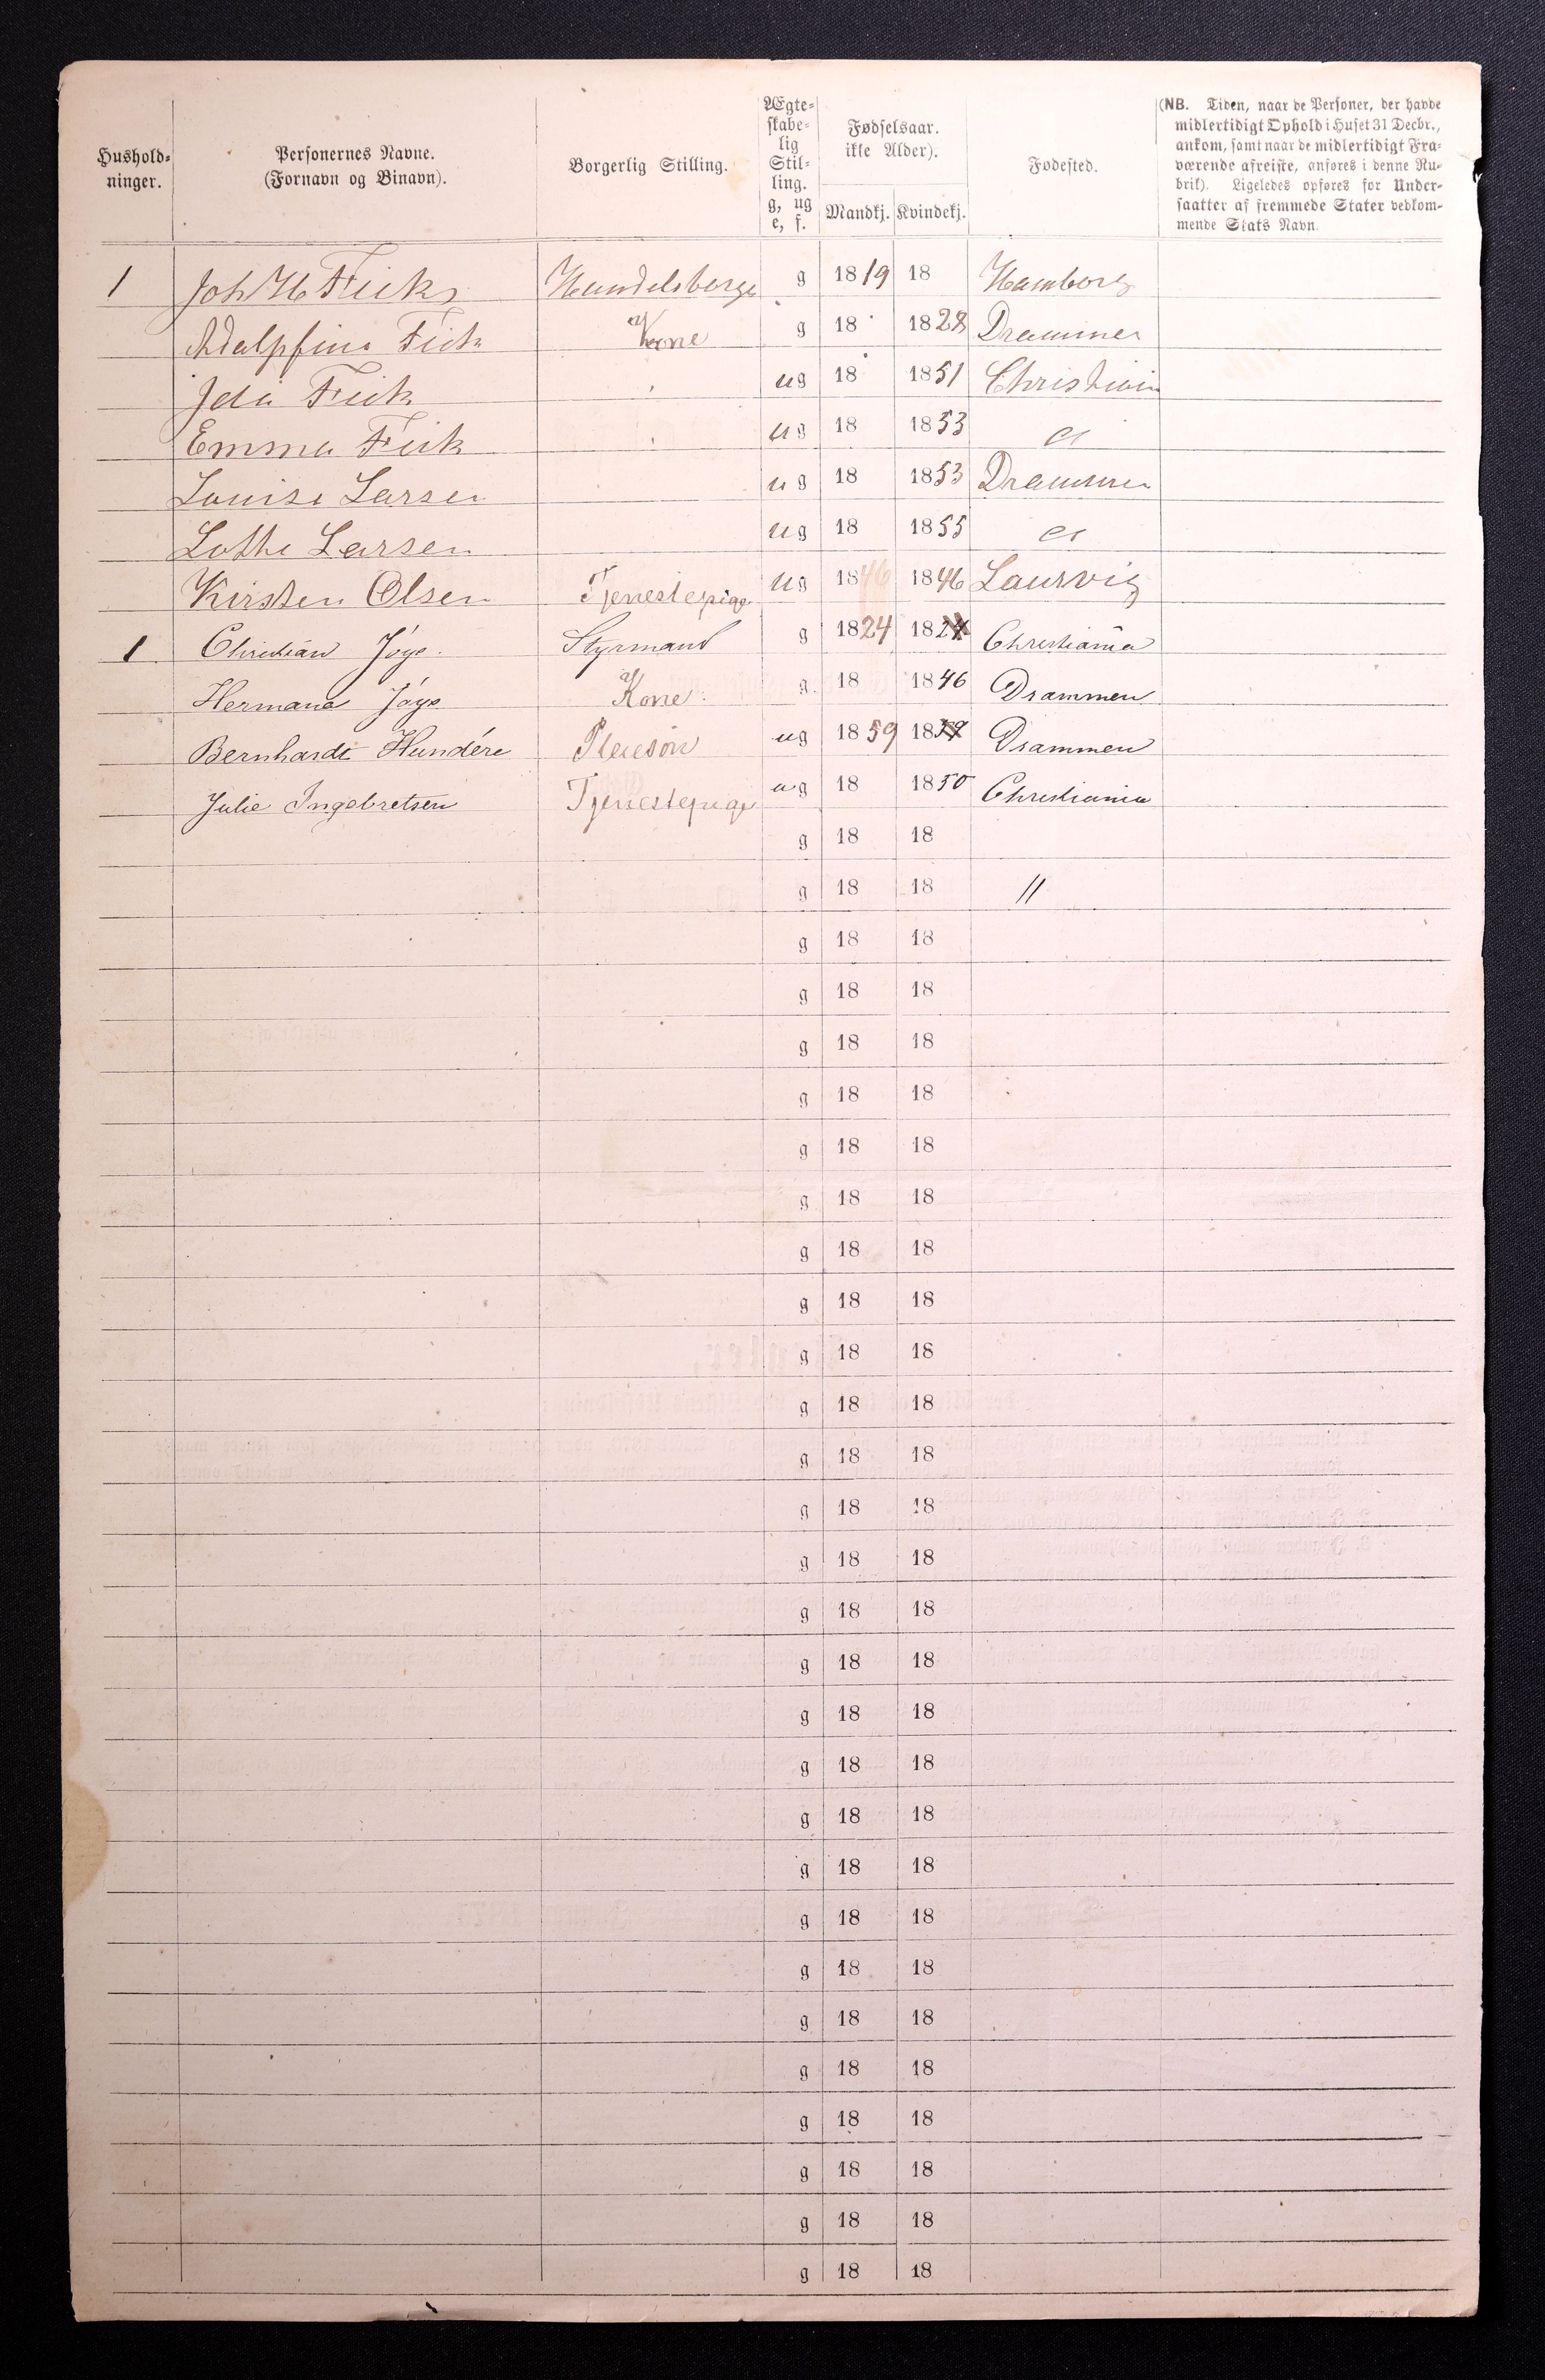 Hushold-
ninger.
Personernes Navne.
(Fornavn og Binavn).
Borgerlig Stilling.
Ægte-
skabe-
lig
Stil-
ling.
g, ug
e, f.
Fødselsaar.
ikke Alder).
Mandkj. Kvindekj.
Fødested.
(NB. Tiden, naar de Personer, der havde
midlertidigt Ophold i Huset 31 Decbr.,
ankom, samt naar de midlertidigt Fra-
værende afreiste, anføres i denne Ru-
brik). Ligeledes opføres for Under-
saatter af fremmede Stater vedkom-
mende Stats Navn.
1 Joh H g 1819 18 Hamborg
Kone g 18 1828 Drammen
Ida ug 18 1851
Emma ug 18 1853
Louise Larsen ug 18 1853 Drammen
Lothe Larsen ug 18 1855
Kirsten Olsen Tjenestepige ug 1846 1846 Laurvig
1 Christian Jøye Styrmand g 1824 1824 Christiania
Hermana Jøye Kone g. 18 1846 Drammen
Bernhardt Hundére Pleiesøn ug 1859 1859 Drammen
Julie Ingebretsen Tjenestepige ug 18 1850 Christiania
g 18 18
g 18 18 //
g 18 18
g 18 18
g 18 18
g 18 18
g 18 18
g 18 18
g 18 18
g 18 18
g 18 18
g 18 18
g 18 18
g 18 18
g 18 18
g 18 18
g 18 18
g 18 18
g 18 18
g 18 18
g 18 18
g 18 18
g 18 18
g 18 18
g 18 18
g 18 18
g 18 18
g 18 18
g 18 18